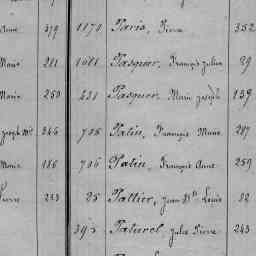 Anne 379 1170 Paris, Pierre 352
Marie 281 1681 Pasquier, François Julien 39
Marie 250 231 Pasquier Marie Joseph 139
Joseph Mie 346 705 Patin, François Marie 287
Marie 186 706 Patin, François Anne 259
Pierre 223 25 Pattier, Jean Bte Louis 32
393 Paturel, Julie Pierre 243